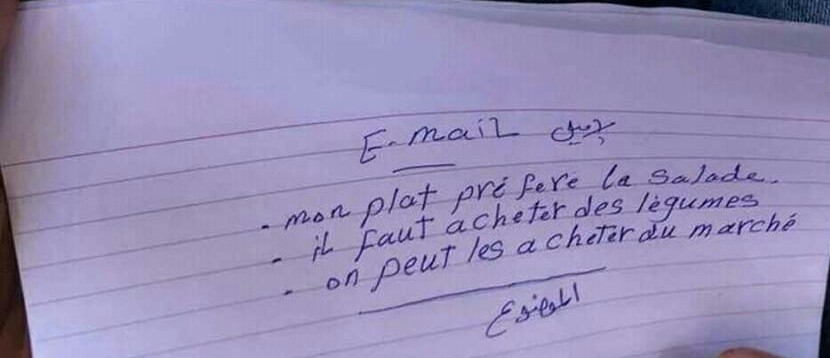 E-mail جميل
- mon plat pré fere la salade.
- il faut acheter des légumes
- on peut les acheter du marché
الموضوع